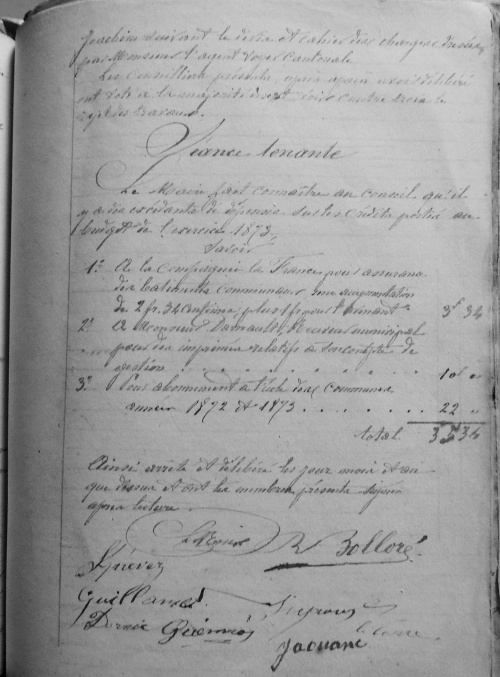 Joachim suivant le devis et cahier des charges dressés
par Monsieur l'agent voyer Cantonale
Les conseillers présents, après après avoir délibéré
ont voté à la majorité de sept voix contre trois le
rejet des travaux.
Séance tenante
Le Maire fait connaître au conseil qu'il
y a des excédants de dépenses sur les crédits portés au
budget de l'exercice 1873,
Savoir
1º A la compagnie la France pour assurance
des batiments communaux une augmentation
de 2 fr. 34 centimes, plus 1 f pour 3f 34
2º A Monsieur receveur municipal
pour des imprimés relatifs à son compte de
gestion 10 "
3º Pour abonnement à l'éch des communes
années 1872 et 1873 22 "
total 35 34
Ainsi arrêté et délibéré les jour mois et an
que dessus et ont les membres présents signés
après lecture.
Le Maire R Bolloré
Guillamet
Jaouanc